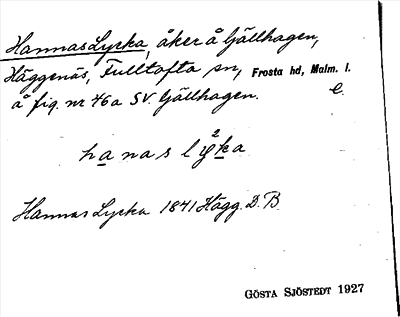 Hannas Lycka, åker å Gjällhagen,
Häggenäs, Fulltofta sn, Frosta hd, Malm. l.
å fig. nr 46a SV. Gjällhagen. e.
hanas lyka
Hannas Lycka 1841 Hägg. D. B.
GÖSTA SJÖSTEDT 1927